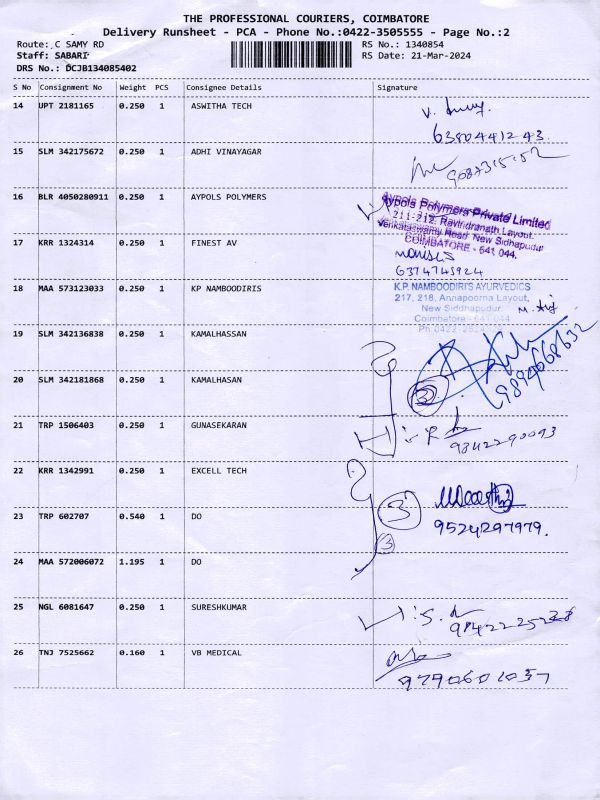 THE PROFESSIONAL COURIERS, COIMBATORE
Delivery Runsheet - PCA - Phone No.:0422-3505555 - Page No.:2
Route: C SAMY RD
RS No.: 1340854
Staff: SABARI
RS Date: 21-Mar-2024
DRS No.: DCJB134085402
S No Consignment No Weight PCS Consignee Details Signature
14 UPT 2181165 0.250 1 ASWITHA TECH
6380441243
15 SLM 342175672 0.250 1 ADHI VINAYAGAR
16 BLR 4050280911 0.250 1 AYPOLS POLYMERS
Aypols Polymers Private Limited
211-212, Ravindranath Layout,
Venkataswamy Road, New Sidhapudur
COIMBATORE - 641 044.
17 KRR 1324314 0.250 1 FINEST AV
6374743924
18 MAA 573123033 0.250 1 KP NAMBOODIRIS
K.P. NAMBOODIRI'S AYURVEDICS
217, 218, Annapoorna Layout,
New Siddhapudur
Coimbatore - 641 044
19 SLM 342136838 0.250 1 KAMALHASSAN
9894668632
20 SLM 342181868 0.250 1 KAMALHASAN
21 TRP 1506403 0.250 1 GUNASEKARAN
9842290093
22 KRR 1342991 0.250 1 EXCELL TECH
23 TRP 602707 0.540 1 DO
3
9524297979.
3
24 MAA 572006072 1.195 1 DO
25 NGL 6081647 0.250 1 SURESHKUMAR
26 TNJ 7525662 0.160 1 VB MEDICAL
9790601037